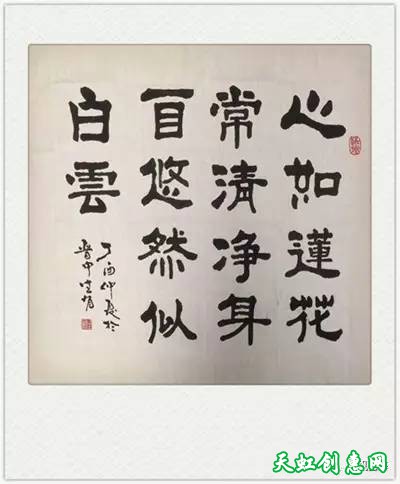 心如蓮花
常清净身
自悠然似
白雲
丁酉仲夏於
晋中
天虹创惠网